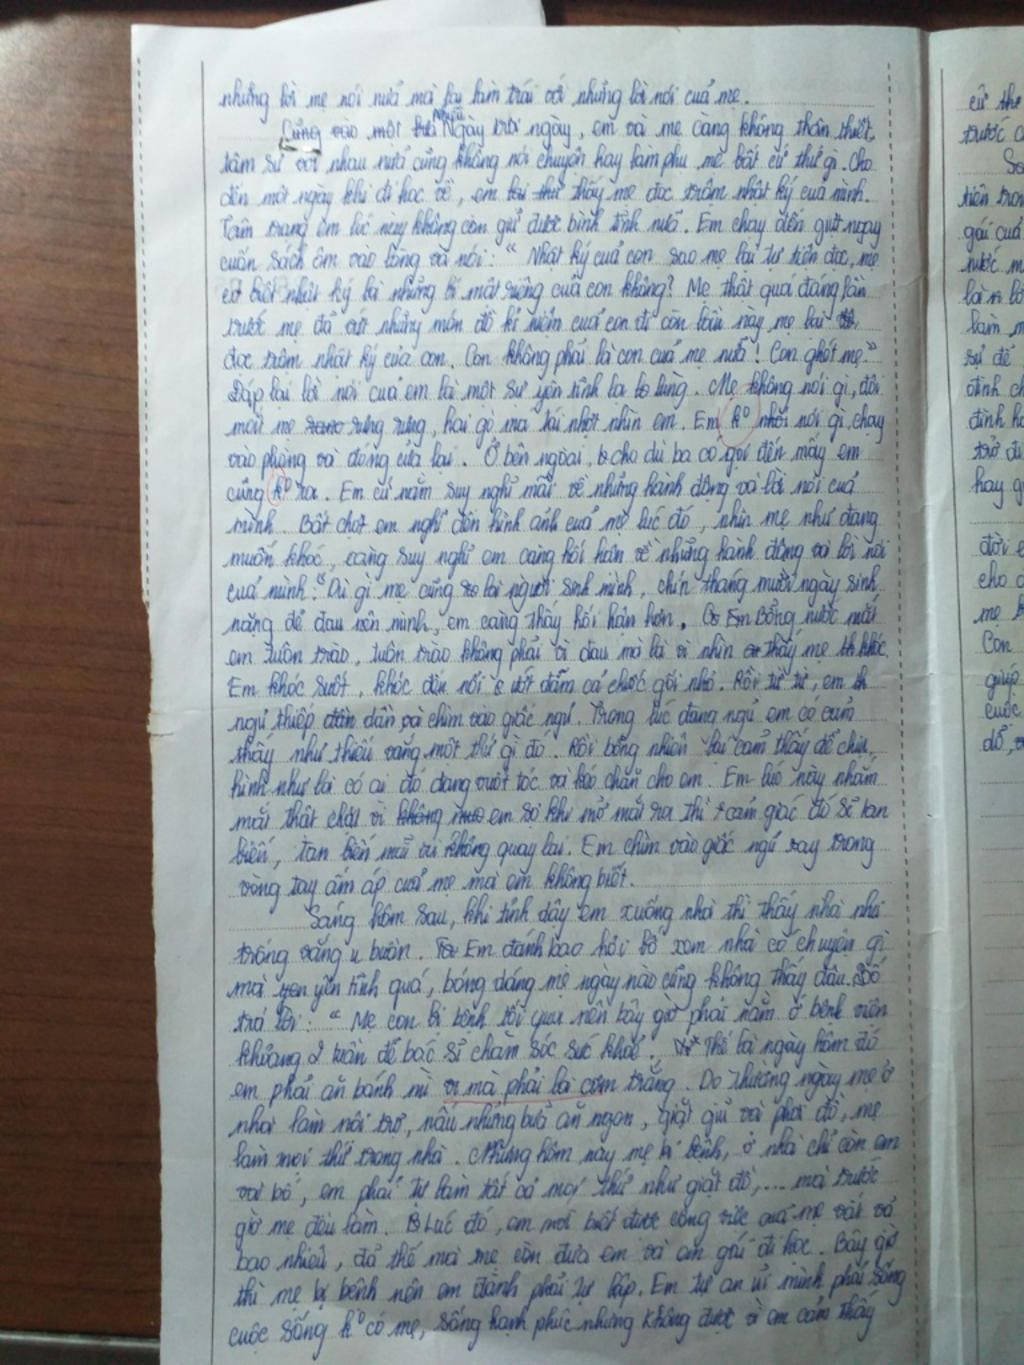 những lời mẹ nói nữa mà lại làm trái với những lời nói của mẹ.
Cũng vào một Ngày trời ngày, em và mẹ càng không thân thiết,
tâm sự với nhau nữa cũng không nói chuyện hay làm phụ mẹ bất cứ thứ gì. Cho
đến một ngày khi đi học về, em thấy mẹ đọc trộm nhật ký của mình.
Tâm trạng em lúc này không còn giữ được bình tĩnh nữa. Em chạy đến giựt ngay
cuốn sách ôm vào lòng và nói: “ Nhật ký của con sao mẹ lại tự tiện đọc, mẹ
có biết nhật ký là những bí mật riêng của con không? Mẹ thật quá đáng lần
trước mẹ đã vứt những món đồ kỉ niệm của con đi còn lần này mẹ lại
đọc trộm nhật ký của con. Con không phải là con của mẹ nữa! Con ghét mẹ.”
Đáp lại lời nói của em là một sự yên tĩnh lạ lùng. Mẹ không nói gì, đôi
mắt mẹ rưng rưng, hai gò má tái nhợt nhìn em. Em k⁰ nói gì, chạy
vào phòng và đóng cửa lại. Ở bên ngoài, cho dù ba có gọi đến mấy em
cũng k⁰ ra. Em cứ nằm suy nghĩ mãi về những hành động và lời nói của
mình. Bất chợt em nghĩ đến hình ảnh của mẹ lúc đó, nhìn mẹ như đang
muốn khóc, càng suy nghĩ em càng hối hận về những hành động và lời nói
của mình. “Dù gì mẹ cũng là người sinh mình, chín tháng mười ngày sinh
nặng đẻ đau nên mình, em càng thấy hối hận hơn. Em Bỗng nước mắt
em tuôn trào, tuôn trào không phải vì đau mà là vì nhìn thấy mẹ khóc.
Em khóc suốt, khóc đến nỗi ướt đẫm cả chiếc gối nhỏ. Rồi từ từ, em
ngủ thiếp dần dần, và chìm vào giấc ngủ. Trong lúc đang ngủ em có cảm
thấy như thiếu vắng một thứ gì đó. Rồi bỗng nhiên lại cảm thấy dễ chịu,
hình như là có ai đó đang vuốt tóc và kéo chăn cho em. Em lúc này nhắm
mắt thật chặt vì em sợ khi mở mắt ra thì cảm giác đó sẽ tan
biến, tan biến mãi và không quay lại. Em chìm vào giấc ngủ say trong
vòng tay ấm áp của mẹ mà em không biết.
Sáng hôm sau, khi tỉnh dậy em xuống nhà thì thấy nhà nhà
trống vắng u buồn. Em đánh bạo hỏi bố xem nhà có chuyện gì
mà yên tĩnh quá, bóng dáng mẹ ngày nào cũng không thấy đâu. Bố
trả lời: “ Mẹ con bị bệnh tối qua nên bây giờ phải nằm ở bệnh viện
khoảng 2 tuần để bác sĩ chăm sóc sức khỏe. Thế là ngày hôm đó
em phải ăn bánh mì vì mà phải là cơm trắng. Do thường ngày mẹ ở
nhà làm nội trợ, nấu những bữa ăn ngon, giặt giũ và phơi đồ, mẹ
làm mọi thứ trong nhà. Nhưng hôm nay mẹ bị bệnh, ở nhà chỉ còn em
và bố, em phải tự làm tất cả mọi thứ như giặt đồ,... mà trước
giờ mẹ đều làm. Lúc đó, em mới biết được công việc của mẹ vất vả
bao nhiêu, đã thế mà mẹ còn đưa em và em gái đi học. Bây giờ
thì mẹ bị bệnh nên em đành phải tự lập. Em tự an ủi mình phải sống
cuộc sống k⁰ có mẹ, sống hạnh phúc nhưng không được vì em cảm thấy